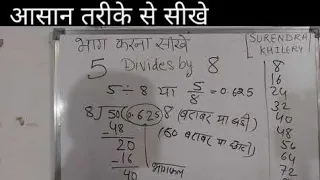 आसान तरीके से सीखे
भाग करना सीखें
5 Divides by 8
5 ÷ 8 या 5/8 = 0.625
8)50(0.625
-48
20
-16
40
भागफल
SURENDRA
KHILERY
8
16
24
32
40
48
56
64
72